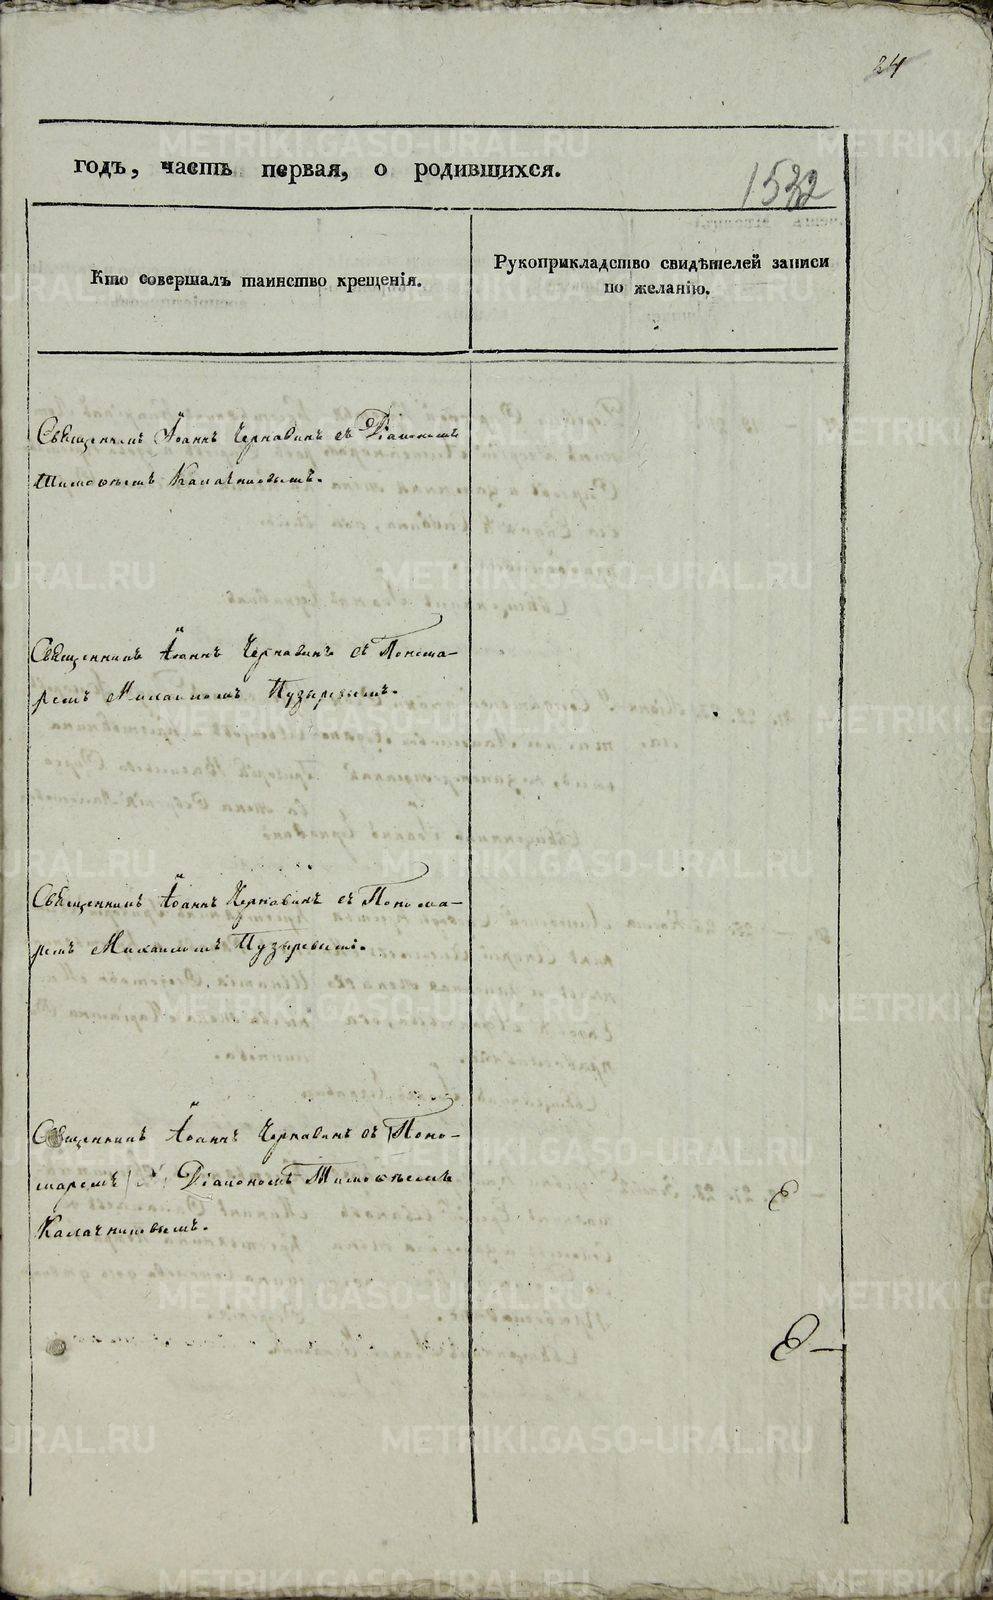 24
годъ, часть первая, о родившихся.
1532
Кто совершалъ таинство крещенія.
Рукоприкладство свидѣтелей записи
по желанію.
Священникъ Іоаннъ Чернавинъ съ Діакономъ
Тимоѳеемъ Калачниковымъ.
Священникъ Іоаннъ Чернавинъ съ Понома-
ремъ Михаиломъ Пузыревымъ.
Священникъ Іоаннъ Чернавинъ съ Понома-
ремъ Михаиломъ Пузыревымъ.
Священникъ Іоаннъ Чернавинъ съ Поно-
маремъ Діакономъ Тимоѳеемъ
Калачниковымъ.
METRIKI.GASO-URAL.RU